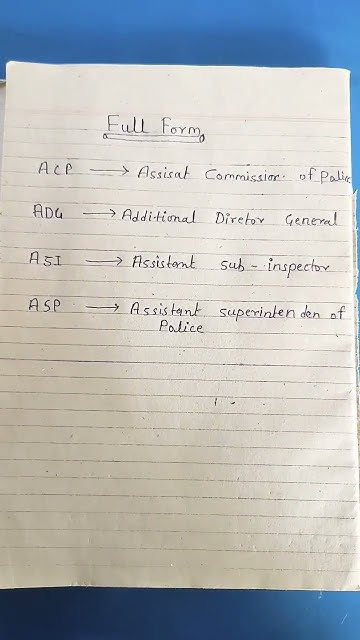 Full Form
ACP → Assisat Commission of Palice
ADG → Additional Diretor General
ASI → Assistant sub-inspector
ASP → Assistant superintenden of
Palice